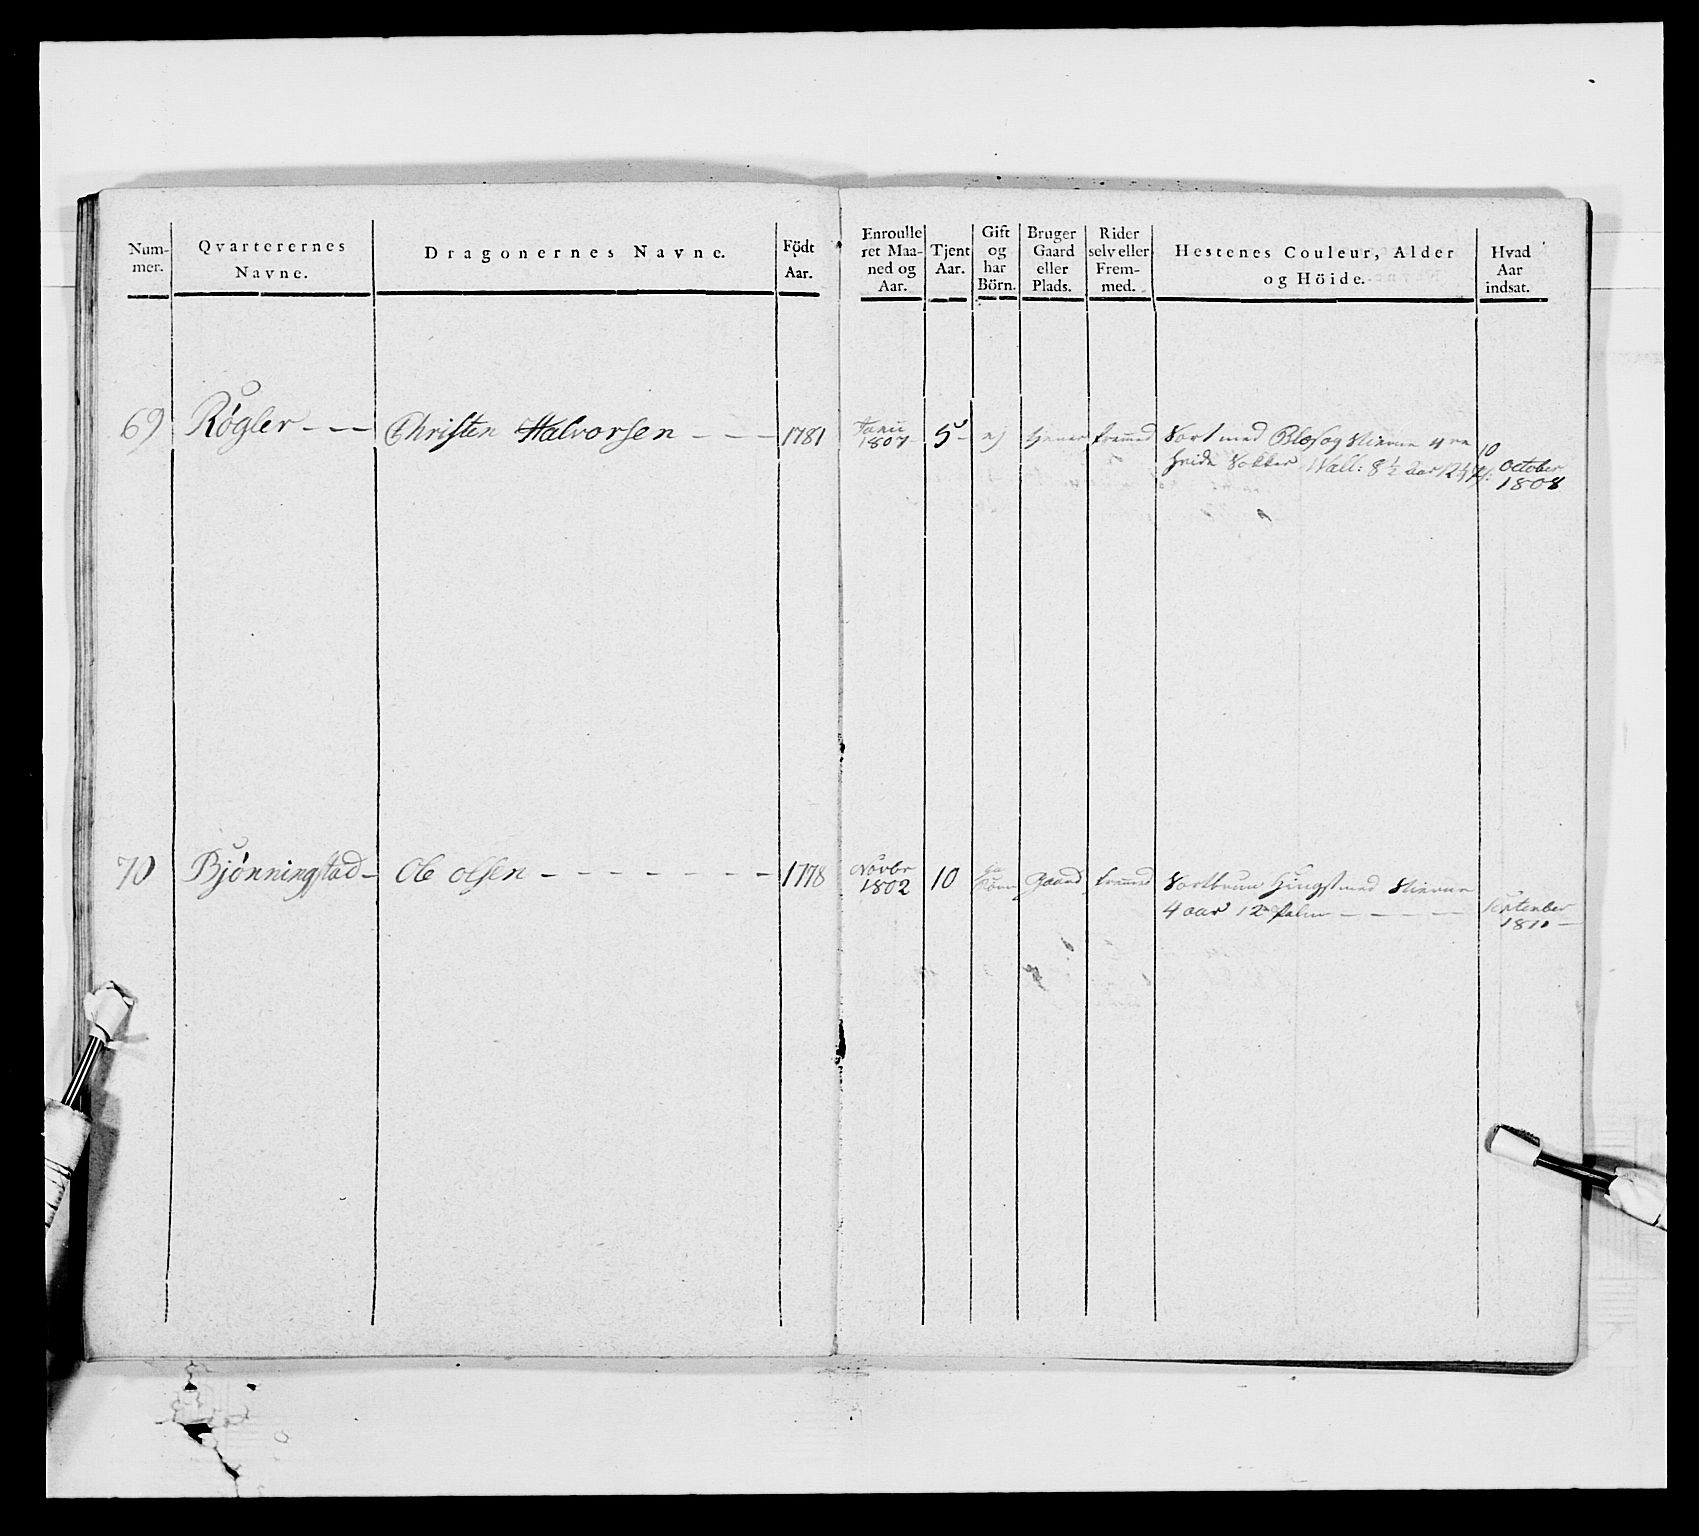 Num-
mer.
Qvarterernes
Navne.
Dragonernes Navne.
Födt
Aar.
Enroulle
ret Maa-
ned og
Aar.
Tjent
Aar.
Gift
og
har
Börn.
Bruger
Gaard
eller
Plads.
Rider
selv eller
Frem-
med.
Hestenes Couleur, Alder
og Höide.
Hvad
Aar
indsat.
69 Røgler - - - Christen Halvorsen - - - 1781 1807 5 ej tjener fremmed Sort med Blos og Stierne 4re
hvide Sokker, Wall: 8½ Aar 12½ October
1808
70 Bjønningstad - Ole olsen - - - - - - - 1778 Novbr 1802 10 Børn Gaard fremmed Sortbrun Hingst med Stierne
4 aar 12 Palm - - - - - September
1810 -